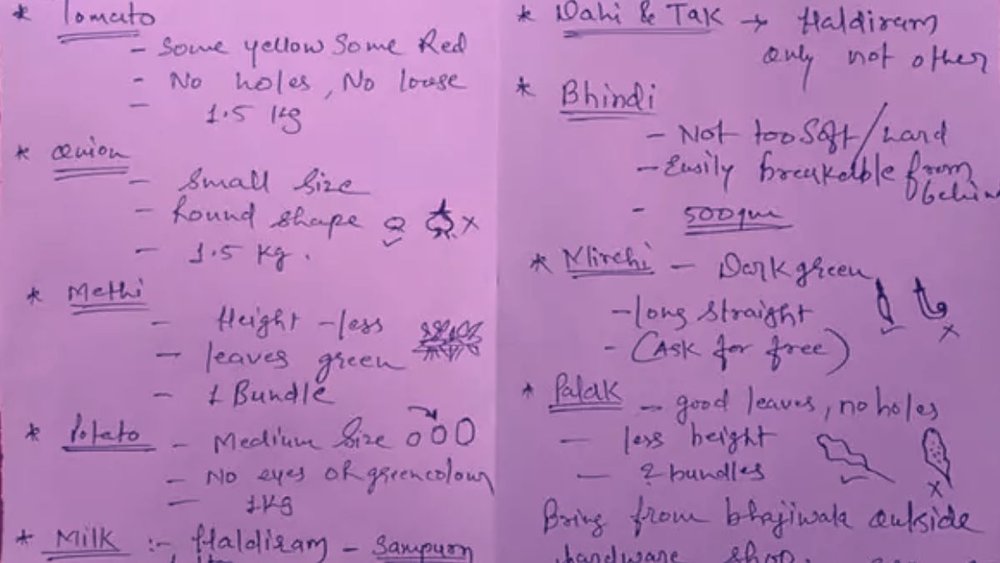 * Tomato
- Some yellow Some Red
- No holes, No loose
- 1.5 Kg
* Onion
- Small Size
- Round shape
- 1.5 Kg.
* Methi
- Height - less
- leaves green
- 1 Bundle
* Potato - Medium Size
- No eyes or green colour
- 1 Kg
* Milk :- Haldiram - Sampurn
* Dahi & Tak → Haldiram
only not other
* Bhindi
- Not too Soft / hard
- Easily breakable from
behin
- 500gm
* Mirchi - Dark green
- long straight
- (Ask for free)
* Palak - good leaves, no holes
- less height
- 2 bundles
Bring from bhajiwala outside
hardware shop.